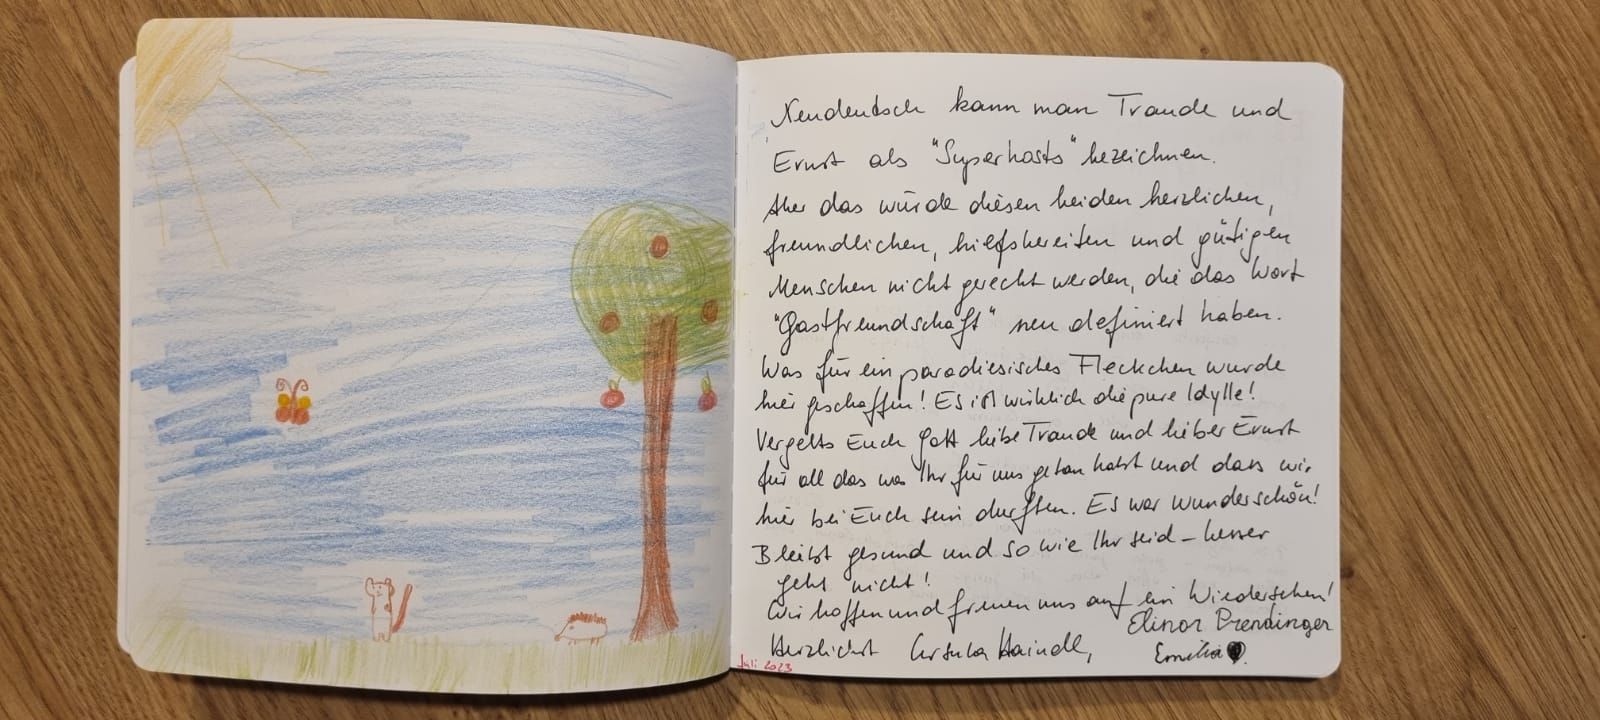 Neudeutsch kann man Traude und
Ernst als "Superhosts" bezeichnen.
Aber das würde diesen beiden herzlichen,
freundlichen, hilfsbereiten und gütigen
Menschen nicht gerecht werden, die das Wort
"Gastfreundschaft" neu definiert haben.
Was für ein paradiesisches Fleckchen wurde
hier geschaffen! Es ist wirklich die pure Idylle!
Vergelts Euch Gott liebe Traude und lieber Ernst
für all das was Ihr für uns getan habt und dass wir
hier bei Euch sein durften. Es war wunderschön!
Bleibt gesund und so wie Ihr seid – besser
geht nicht!
Wir hoffen und freuen uns auf ein Wiedersehen!
Elinor Prendinger
Herzlichst Ursula Haindl,
Emilia
Juli 2023